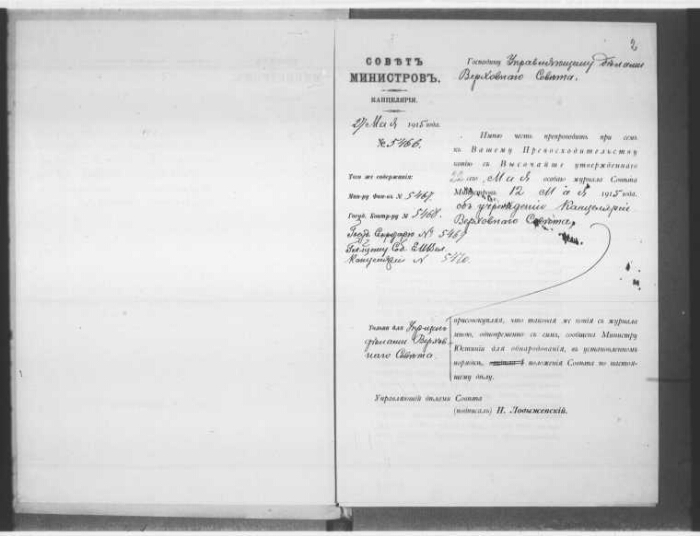 2
СОВѢТЪ
МИНИСТРОВЪ.
КАНЦЕЛЯРІЯ.
27 Мая 1915 года.
№ 5466.
Того же содержанія:
Мин-ру Фин-въ № 5467.
Госуд. Контр-ру № 5468.
Госуд. Секрдарю № 5469
Канцеляріи № 5470.
Господину Управляющему дѣлами
Верховнаго Совѣта.
Имѣю честь препроводить при семъ
къ Вашему Превосходительству
копію съ Высочайше утвержденнаго
22-го Мая особаго журнала Совѣта
Министровъ 12 Мая 1915 года.
объ учрежденіи Канцеляріи
Верховнаго Совѣта,
Только для Упр-щаго
дѣлами Верхов-
наго Совѣта.
присовокупляя, что таковая же копія съ журнала
мною, одновременно съ симъ, сообщена Министру
Юстиціи для обнародованія, въ установленномъ
порядкѣ, положенія Совѣта по настоя-
щему дѣлу.
Управляющій дѣлами Совѣта
(подписалъ) И. Лодыженскій.